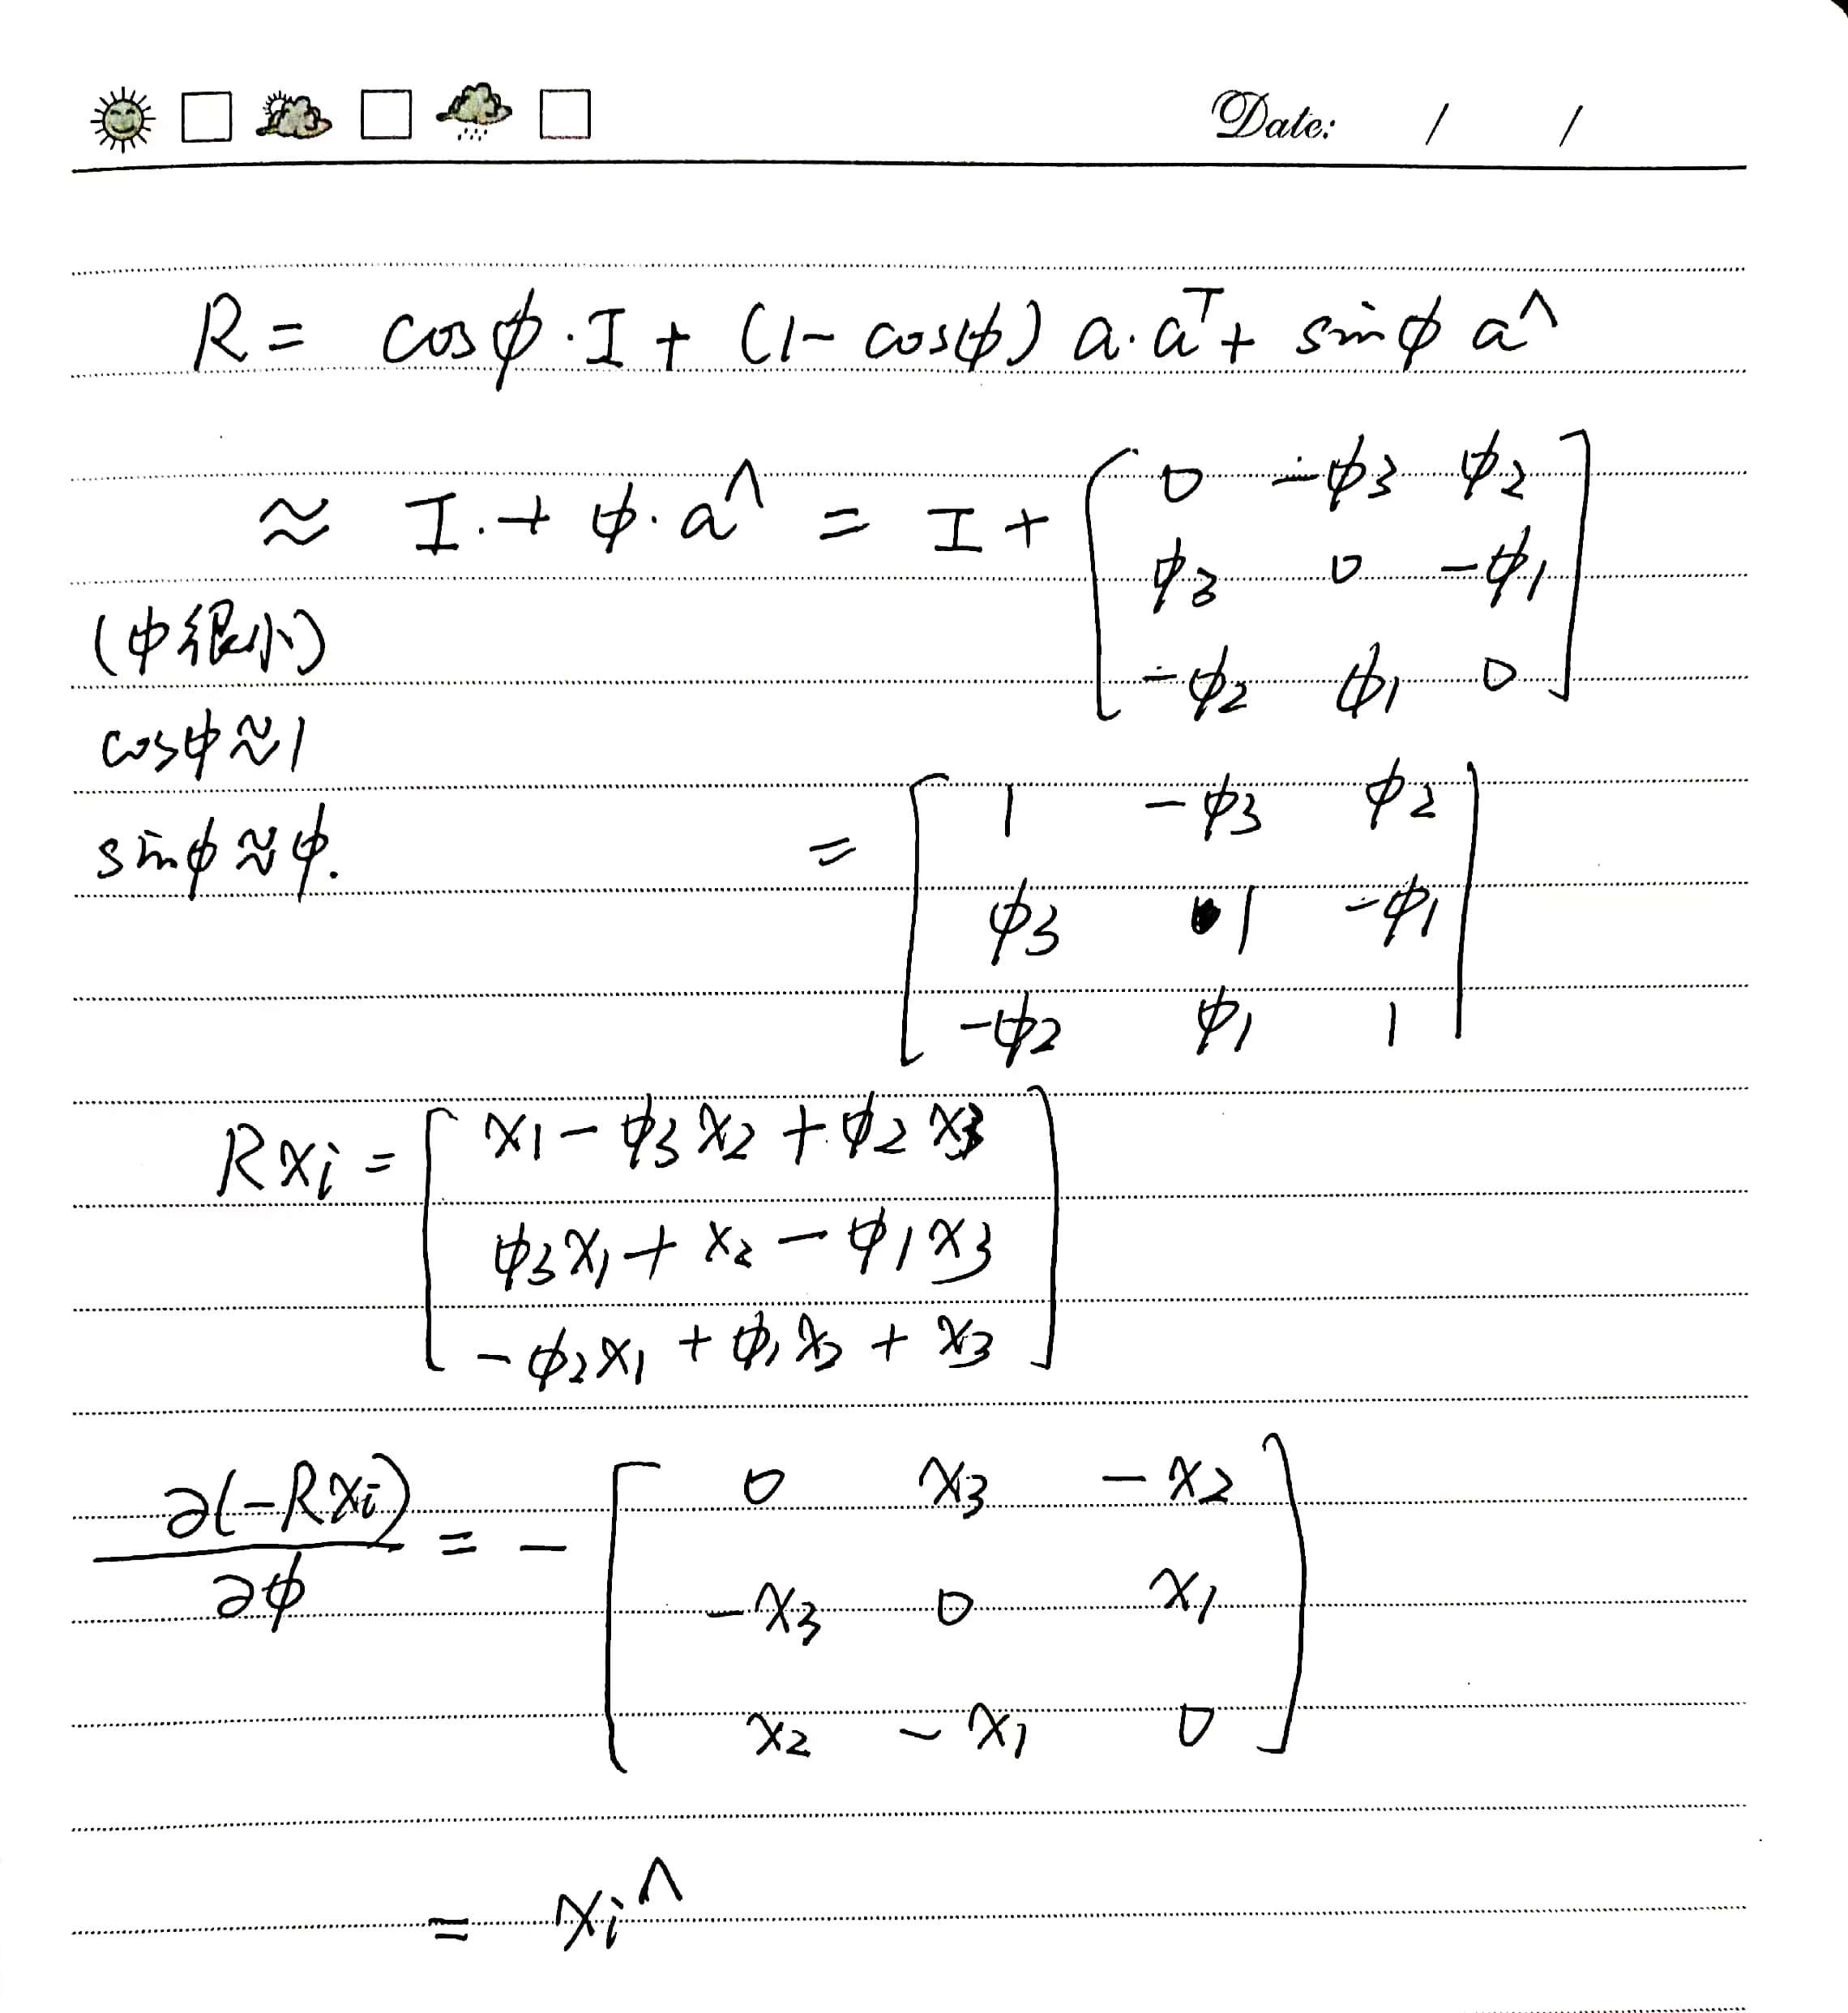 Date: / /
R = cosϕ·I + (1-cosϕ) a·aᵀ + sinϕ a^
≈ I + ϕ·a^ = I + [0 -ϕ3 ϕ2
ϕ3 0 -ϕ1
-ϕ2 ϕ1 0]
(ϕ很小)
cosϕ≈1
sinϕ≈ϕ.
= [1 -ϕ3 ϕ2
ϕ3 1 -ϕ1
-ϕ2 ϕ1 1]
Rxi = [x1 - ϕ3x2 + ϕ2x3
ϕ3x1 + x2 - ϕ1x3
-ϕ2x1 + ϕ1x2 + x3]
∂(-Rxi)/∂ϕ = - [0 x3 -x2
-x3 0 x1
x2 -x1 0]
= xi^